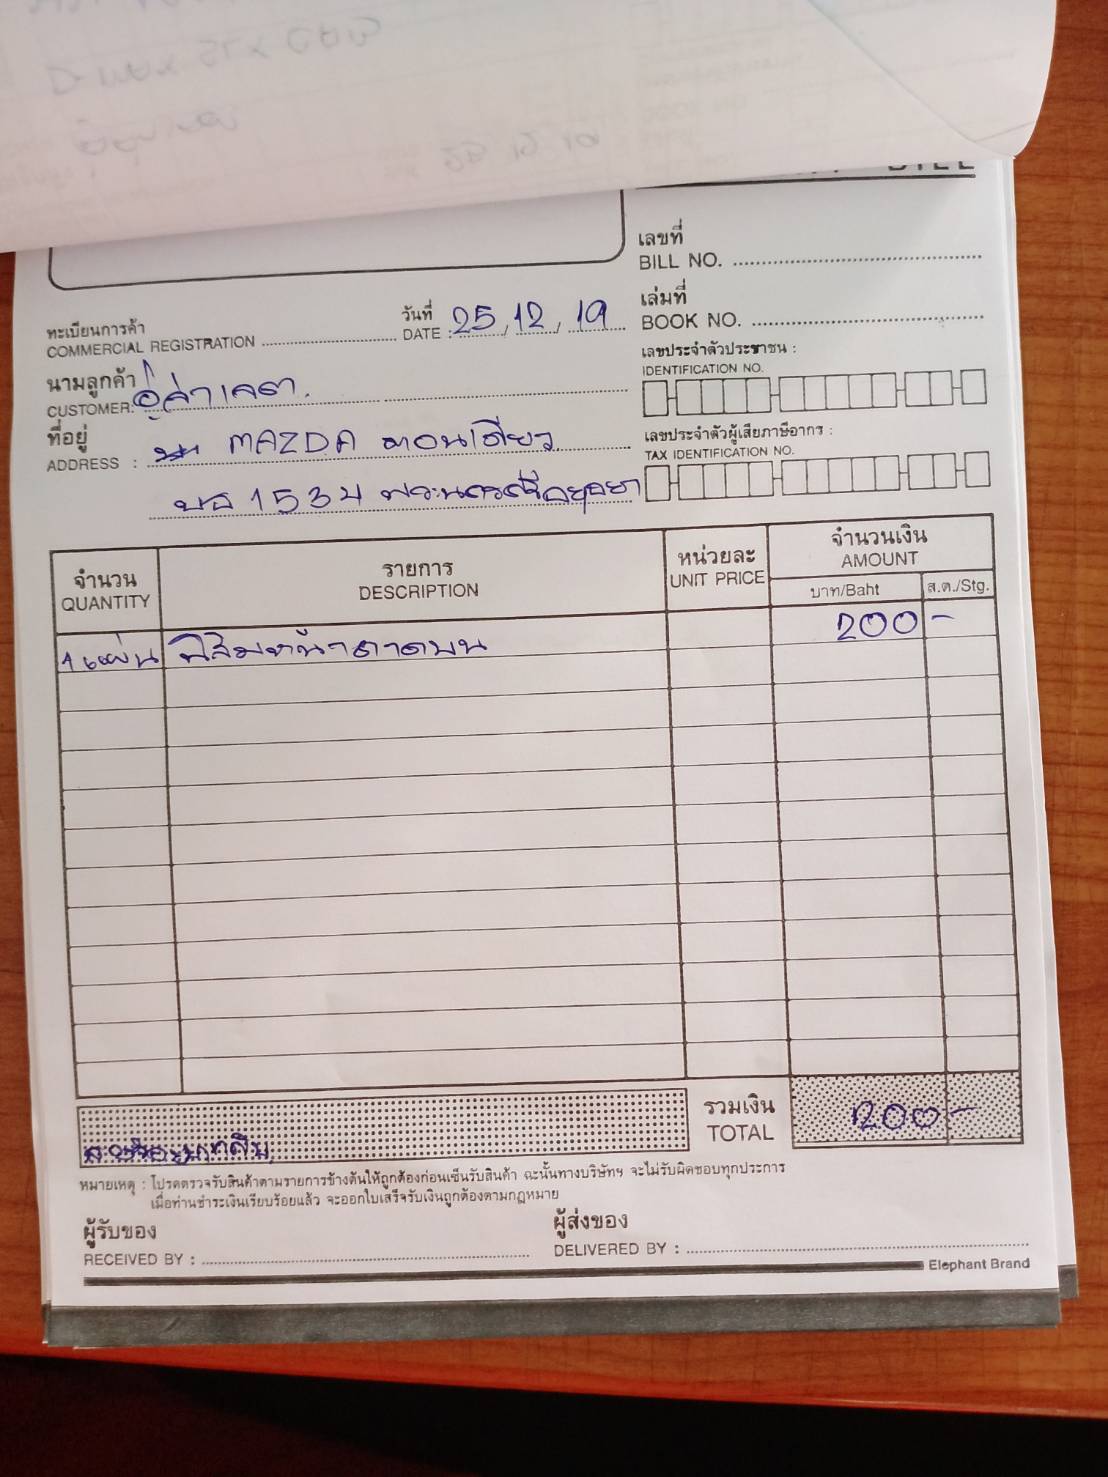 BILL
เลขที่
BILL NO.
เล่มที่
BOOK NO.
ทะเบียนการค้า
COMMERCIAL REGISTRATION
วันที่
DATE : 25, 12, 19
เลขประจำตัวประชาชน :
IDENTIFICATION NO.
นามลูกค้า
CUSTOMER:
ที่อยู่
ADDRESS : MAZDA ตอนเดียว
บธ 1534 พระนครศรีอยุธยา
เลขประจำตัวผู้เสียภาษีอากร :
TAX IDENTIFICATION NO.
จำนวน
QUANTITY
รายการ
DESCRIPTION
หน่วยละ
UNIT PRICE
จำนวนเงิน
AMOUNT
บาท/Baht
ส.ต./Stg.
1 แผ่น
200 -
รวมเงิน
TOTAL
200 -
หมายเหตุ : โปรดตรวจรับสินค้าตามรายการข้างต้นให้ถูกต้องก่อนเซ็นรับสินค้า ฉะนั้นทางบริษัทฯ จะไม่รับผิดชอบทุกประการ
เมื่อท่านชำระเงินเรียบร้อยแล้ว จะออกใบเสร็จรับเงินถูกต้องตามกฎหมาย
ผู้รับของ
RECEIVED BY :
ผู้ส่งของ
DELIVERED BY :
Elephant Brand